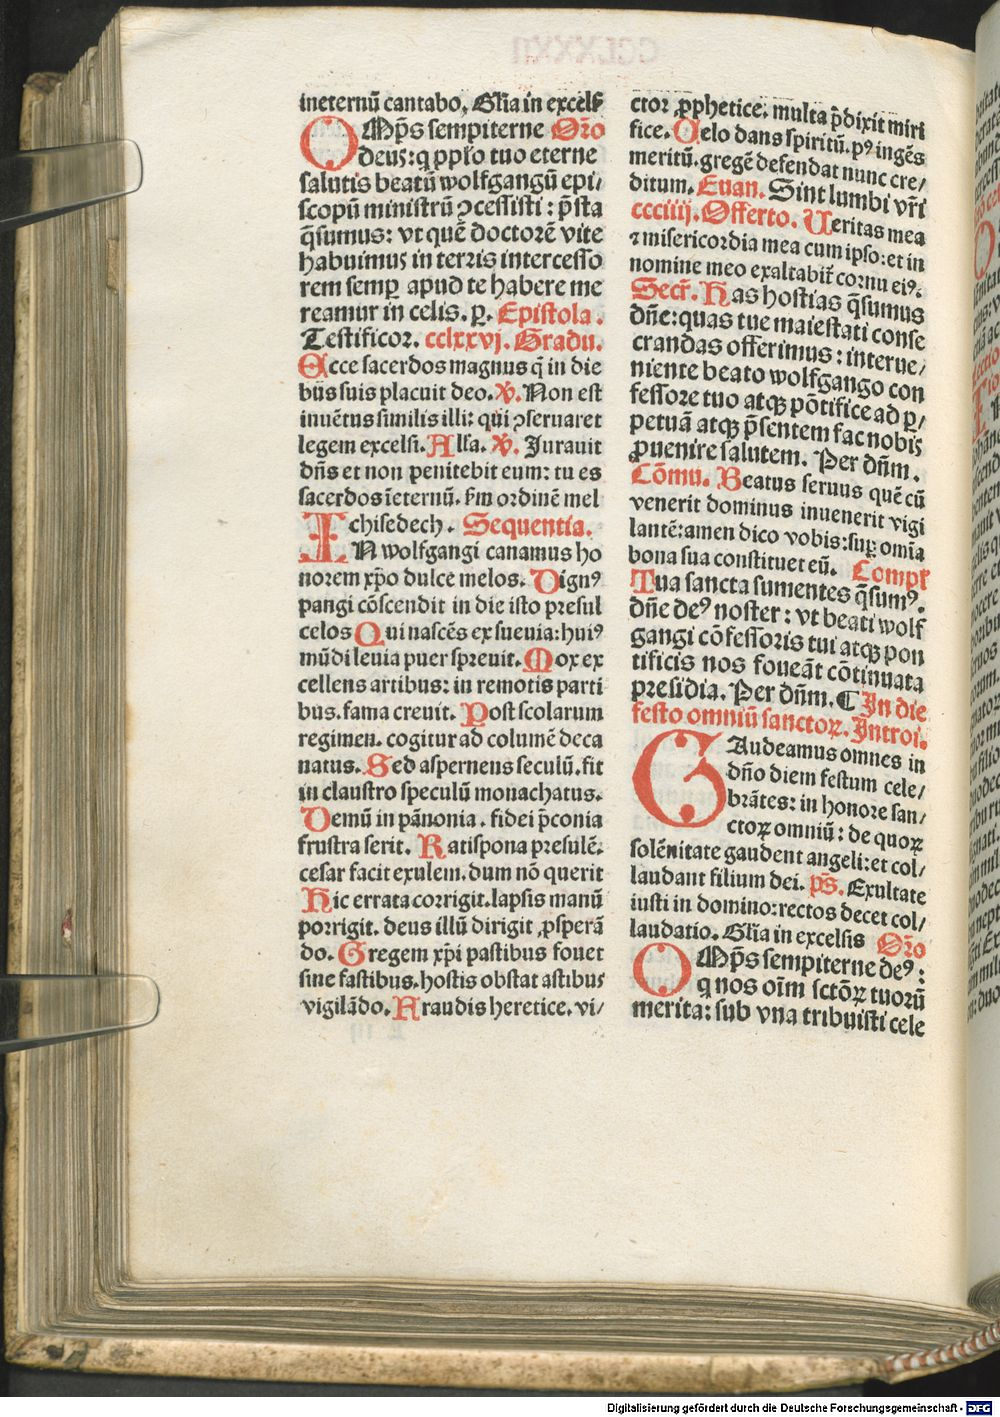 ineternū cantabo. Gl̃ia in excelſ
OMp̄s ſempiterne Or̃o
deus: q ppl̄o tuo eterne
ſalutis beatū wolfgangū epi/
ſcopū miniſtrū ꝯceſſiſti: p̄ſta
q̄ſumus: vt quē doctorē vite
habuimus in terris interceſſo
rem ſemꝑ apud te habere me
reamur in celis. ꝑ. Epiſtola.
Teſtificor. cclxxvj. Gradu.
Ecce ſacerdos magnus q̄ in die
bus ſuis placuit deo. V̉. Non eſt
inuētus ſimilis illi: qui ꝯſeruaret
legem excelſi. All̃a. V̉. Jurauit
dn̄s et non penitebit eum: tu es
ſacerdos īeternū. ẜm ordinē mel
chiſedech. Sequentia.
IN wolfgangi canamus ho
norem xp̄o dulce melos. Dignꝰ
pangi cōſcendit in die iſto preſul
celos Qui naſcēs ex ſueuia: huiꝰ
mūdi leuia puer ſpreuit. Mox ex
cellens artibus: in remotis parti
bus. fama creuit. Poſt ſcolarum
regimen. cogitur ad columē deca
natus. Sed aſpernens ſeculū. fit
in clauſtro ſpeculū monachatus.
Demū in pānonia. fidei p̄conia
fruſtra ſerit. Ratiſpona preſulē:
ceſar facit exulem. dum nō querit
Hic errata corrigit. lapſis manū
porrigit. deus illū dirigit ꝓſperā
do. Gregem xp̄i paſtibus fouet
ſine faſtibus. hoſtis obſtat aſtibus
vigilādo. Fraudis heretice. vi/
ctor ꝓphetice. multa p̄dixit miri
fice. Celo dans ſpiritū. pꝰ ingēs
meritū. gregē defendat nunc cre/
ditum. Euan. Sint lumbi vr̄i
ccciiij. Offerto. Ueritas mea
⁊ miſericordia mea cum ipſo: et in
nomine meo exaltabit̄ cornu eiꝰ.
Secr̄. Has hoſtias q̄ſumus
dn̄e: quas tue maieſtati conſe
crandas offerimus: interue/
niente beato wolfgango con
feſſore tuo atqꝫ pōtifice ad ꝑ/
petuā atqꝫ p̄ſentem fac nobis
ꝓuenire ſalutem. Per dn̄m.
Cōmu. Beatus ſeruus quē cū
venerit dominus inuenerit vigi
lantē: amen dico vobis: ſuꝑ omīa
bona ſua conſtituet eū. Compl̄
Tua ſancta ſumentes q̄ſumꝰ.
dn̄e deꝰ noſter: vt beati wolf
gangi cōfeſſoris tui atqꝫ pon
tificis nos foueāt cōtinuata
preſidia. Per dn̄m. ¶ In die
feſto omniū ſanctoꝝ. Introi.
GAudeamus omnes in
dn̄o diem feſtum cele/
brātes: in honore ſan/
ctoꝝ omniū: de quoꝝ
ſolēnitate gaudent angeli: et col/
laudant filium dei. p̄s. Exultate
iuſti in domino: rectos decet col/
laudatio. Gl̃ia in excelſis Or̃o
OMp̄s ſempiterne deꝰ:
q nos oīm ſctōꝝ tuorū
merita: ſub vna tribuiſti cele
Digitalisierung gefördert durch die Deutsche Forschungsgemeinschaft - DFG